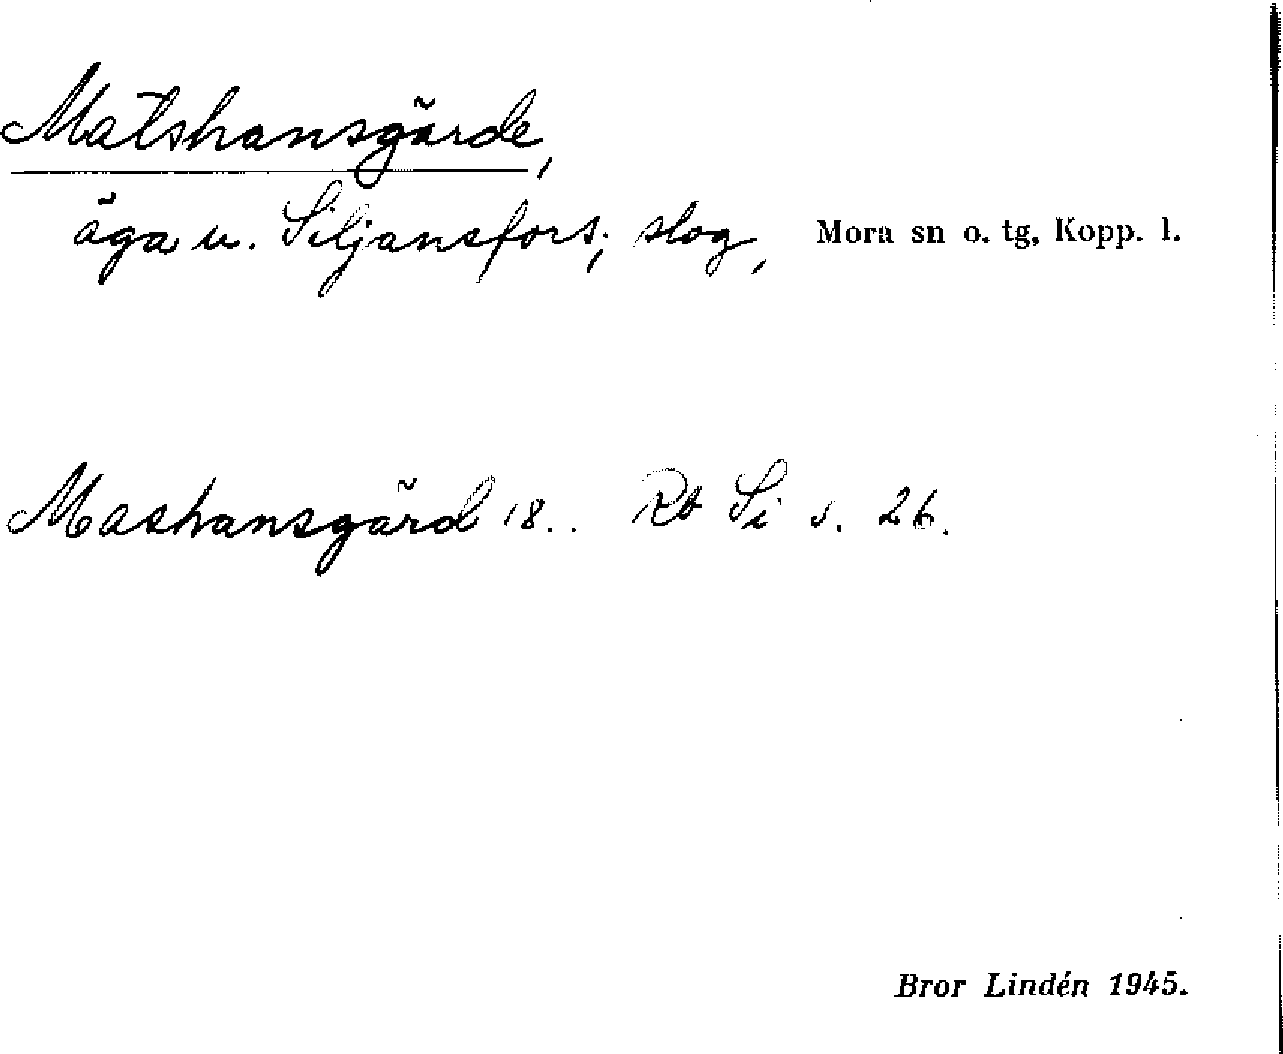 Matshansgärde,
äga u. Siljansfors; slog, Mora sn o. tg, Kopp. l.
Mashansgärd 18.. Rb Si s. 26.
Bror Lindén 1945.